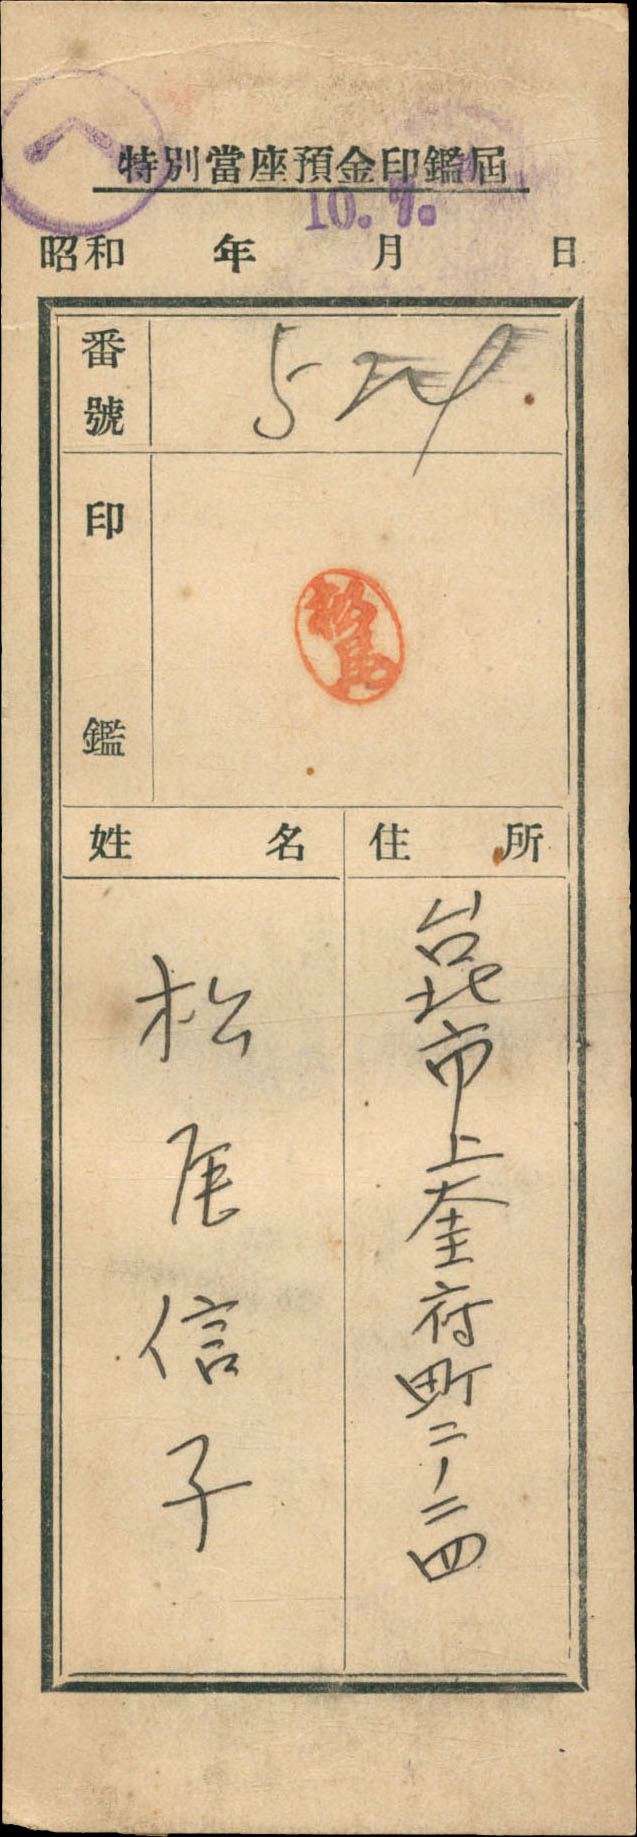 ヘ
特別當座預金印鑑屆
10. 7.
昭和 年 月 日
番號
印鑑
松尾
姓名 住所
台北市上奎府町二ノ二四
松尾信子